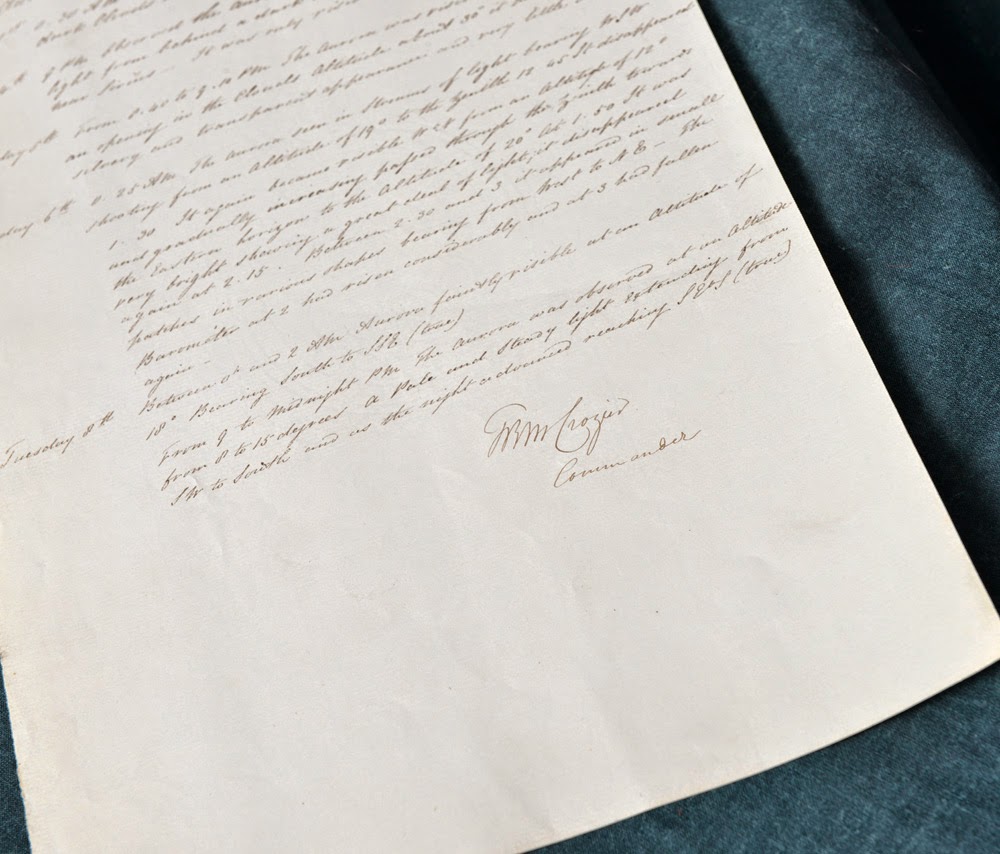 0. 20 AM
dark Clouds
9 PM Showed the Auro
light from behind a dark
near Sirius - It was very
From 8.40 to 9.10 PM The Aurora was visi
an opening in the Clouds Altitude about 30° it
silvery and transparent appearance and very little
0. 25 AM The Aurora seen in Streams of light bearing WSW
shooting from an Altitude of 19° to the Zenith 12 45 It disappeared
1. 30 It again became visible from an Altitude of 12°
and gradually increasing passed through the Zenith towards
the Eastern horizon to the Altitude of 20° At 1. 50 It was
very bright shewing a great deal of light, it disappeared
again at 2. 15. Between 2. 30 and 3 it appeared in small
patches in various shapes bearing from West to NE - The
Barometer at 2 had risen considerably and at 3 had fallen
again
Tuesday 8th Between 0h and 2 AM Aurora faintly visible at an Altitude of
18° Bearing South to SSE (true)
From 9 to Midnight PM The Aurora was observed at an Altitude
from 8 to 15 degrees a Pale and Steady light extending from
SW to South and as the night advanced reaching SEbS (true)
FRM Crozier
Commander